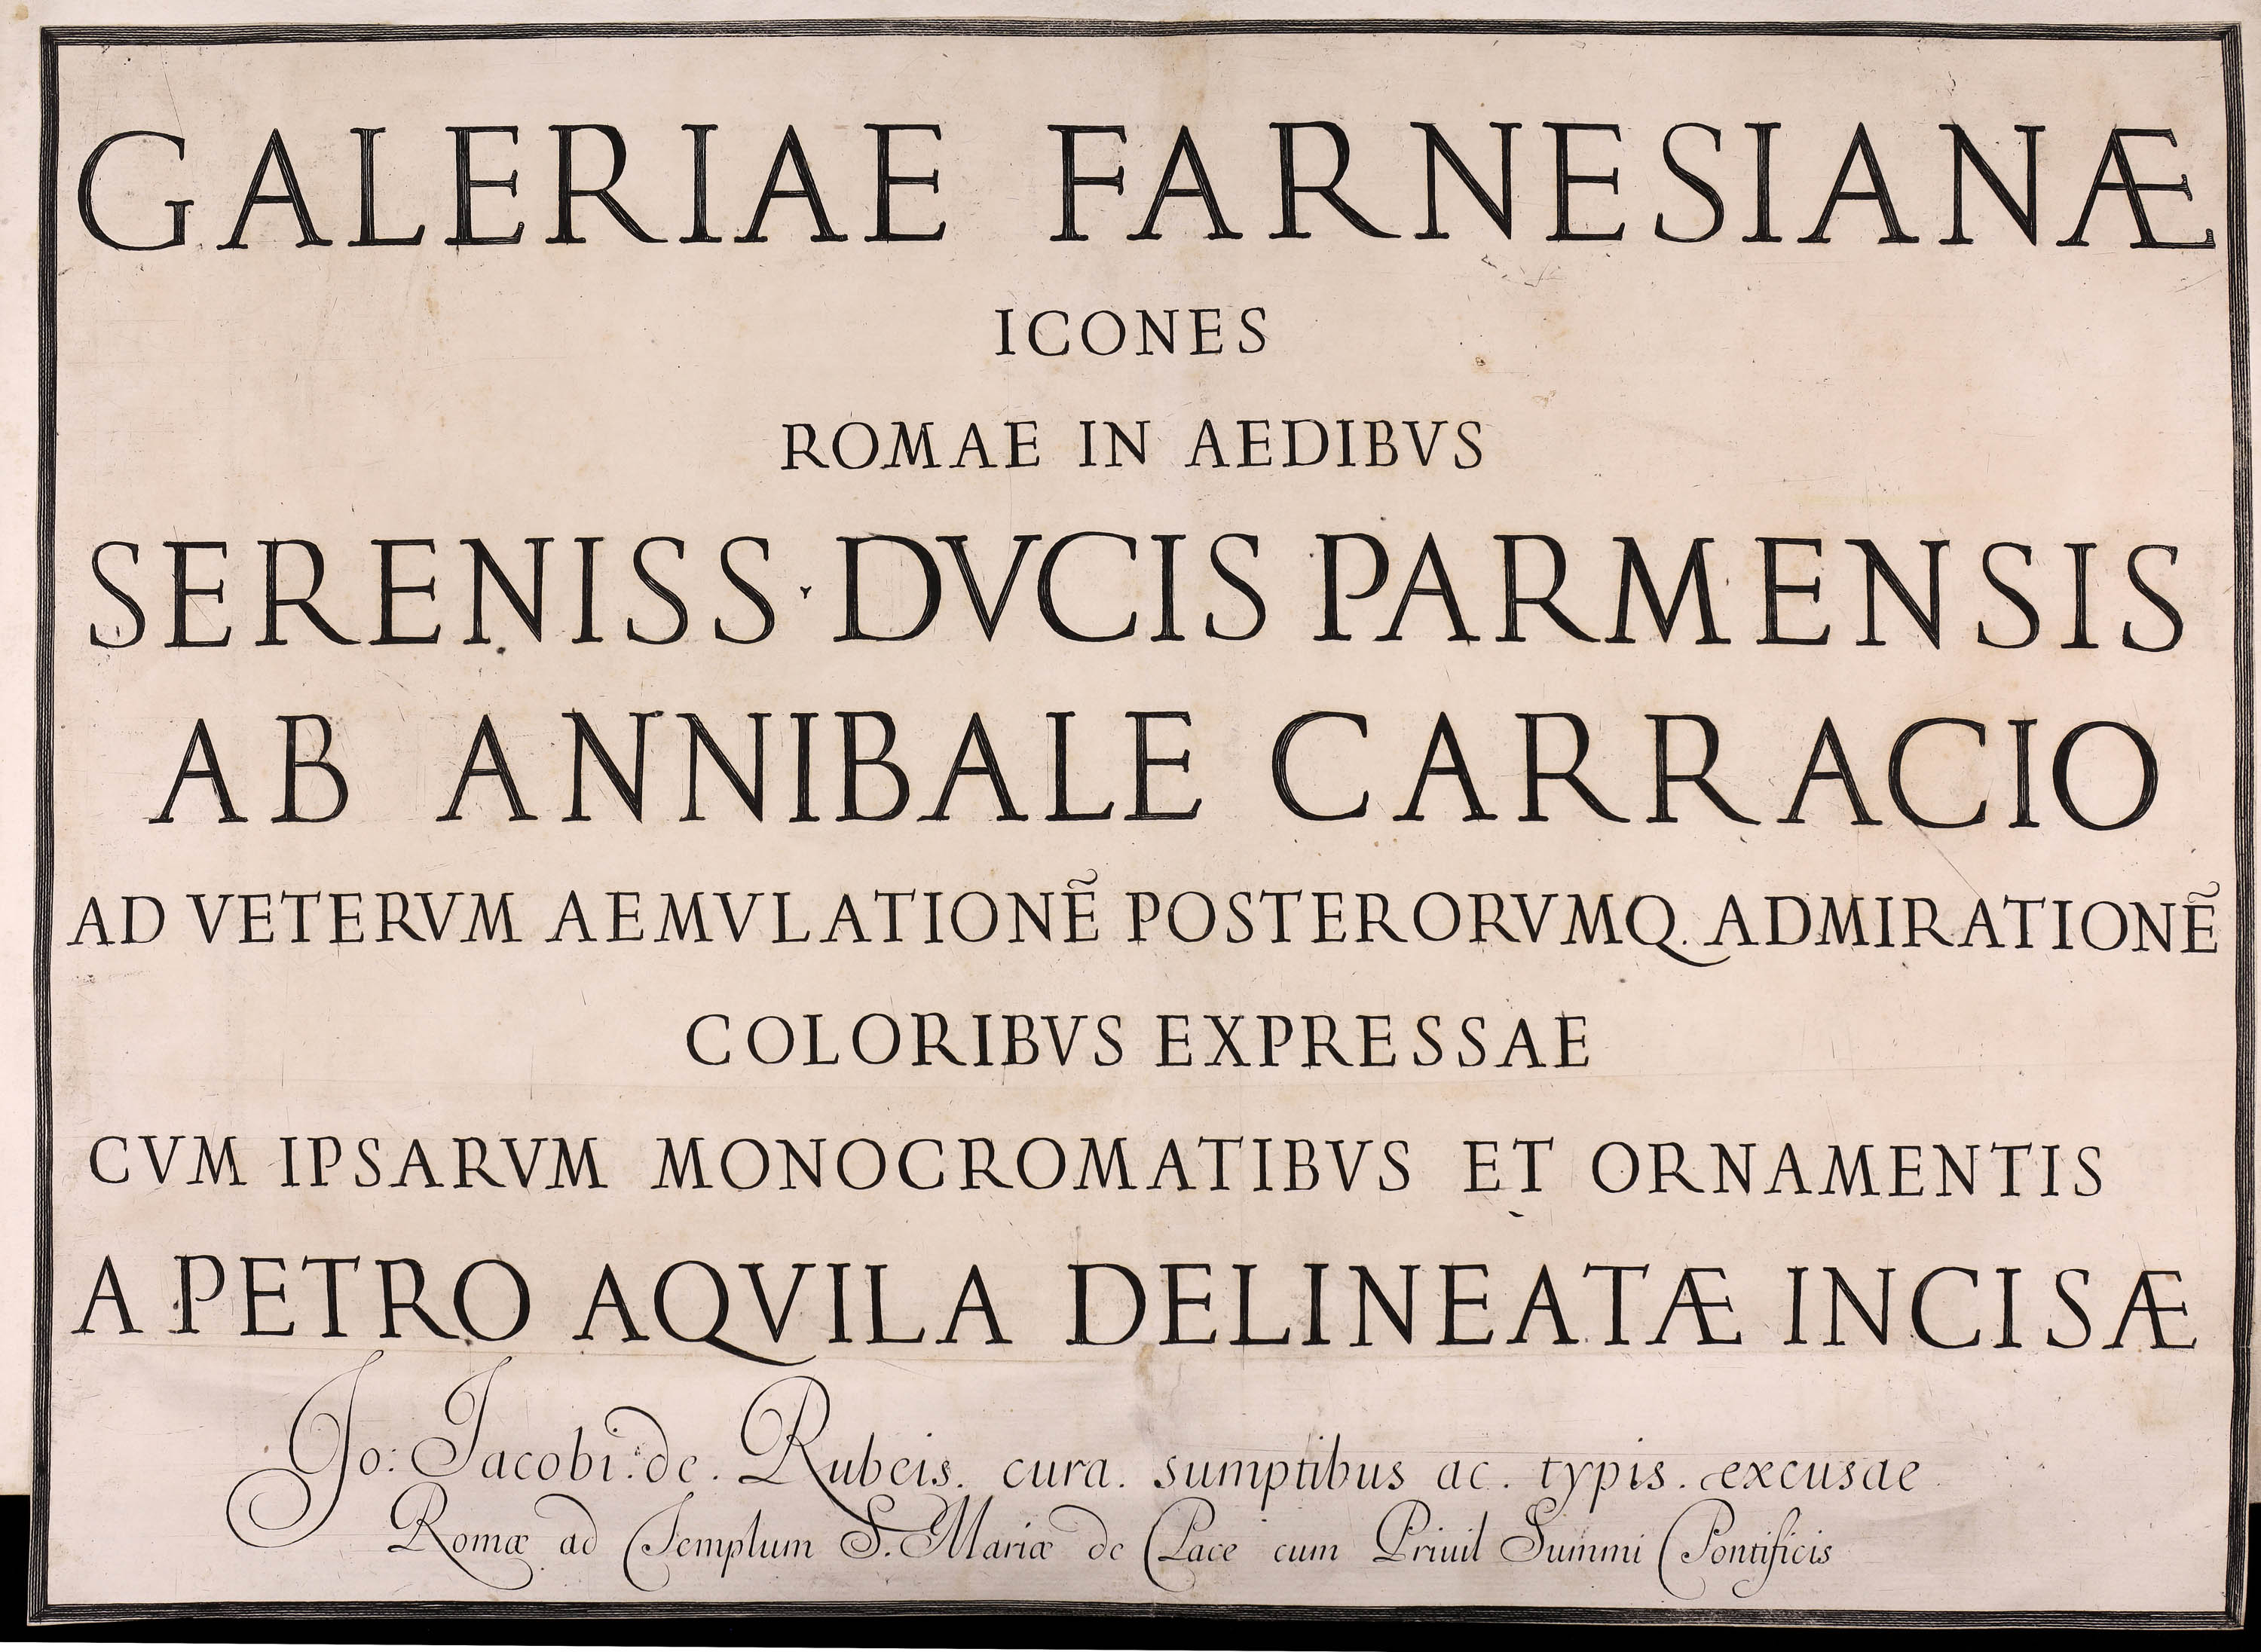 GALERIAE FARNESIANÆ
ICONES
ROMAE IN AEDIBVS
SERENISS · DVCIS PARMENSIS
AB ANNIBALE CARRACIO
AD VETERVM AEMVLATIONẼ POSTERORVMQ. ADMIRATIONẼ
COLORIBVS EXPRESSAE
CVM IPSARVM MONOCROMATIBVS ET ORNAMENTIS
A PETRO AQVILA DELINEATÆ INCISÆ
Jo: Jacobi. de. Rubeis. cura. sumptibus ac. typis. excusae
Romæ ad Templum S. Mariæ de Pace cum Priuil Summi Pontificis